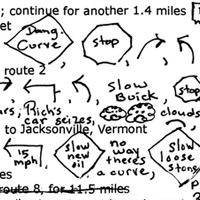 ; continue for another 1.4 miles
et
Dang. Curve
stop
route 2
slow Buick,
stop
ars, Rich's car seizes,
clouds
to Jacksonville, Vermont
15 mph,
slow new oil
no way there's a curve,
slow loose stone
p,
route 8, for 11.5 miles